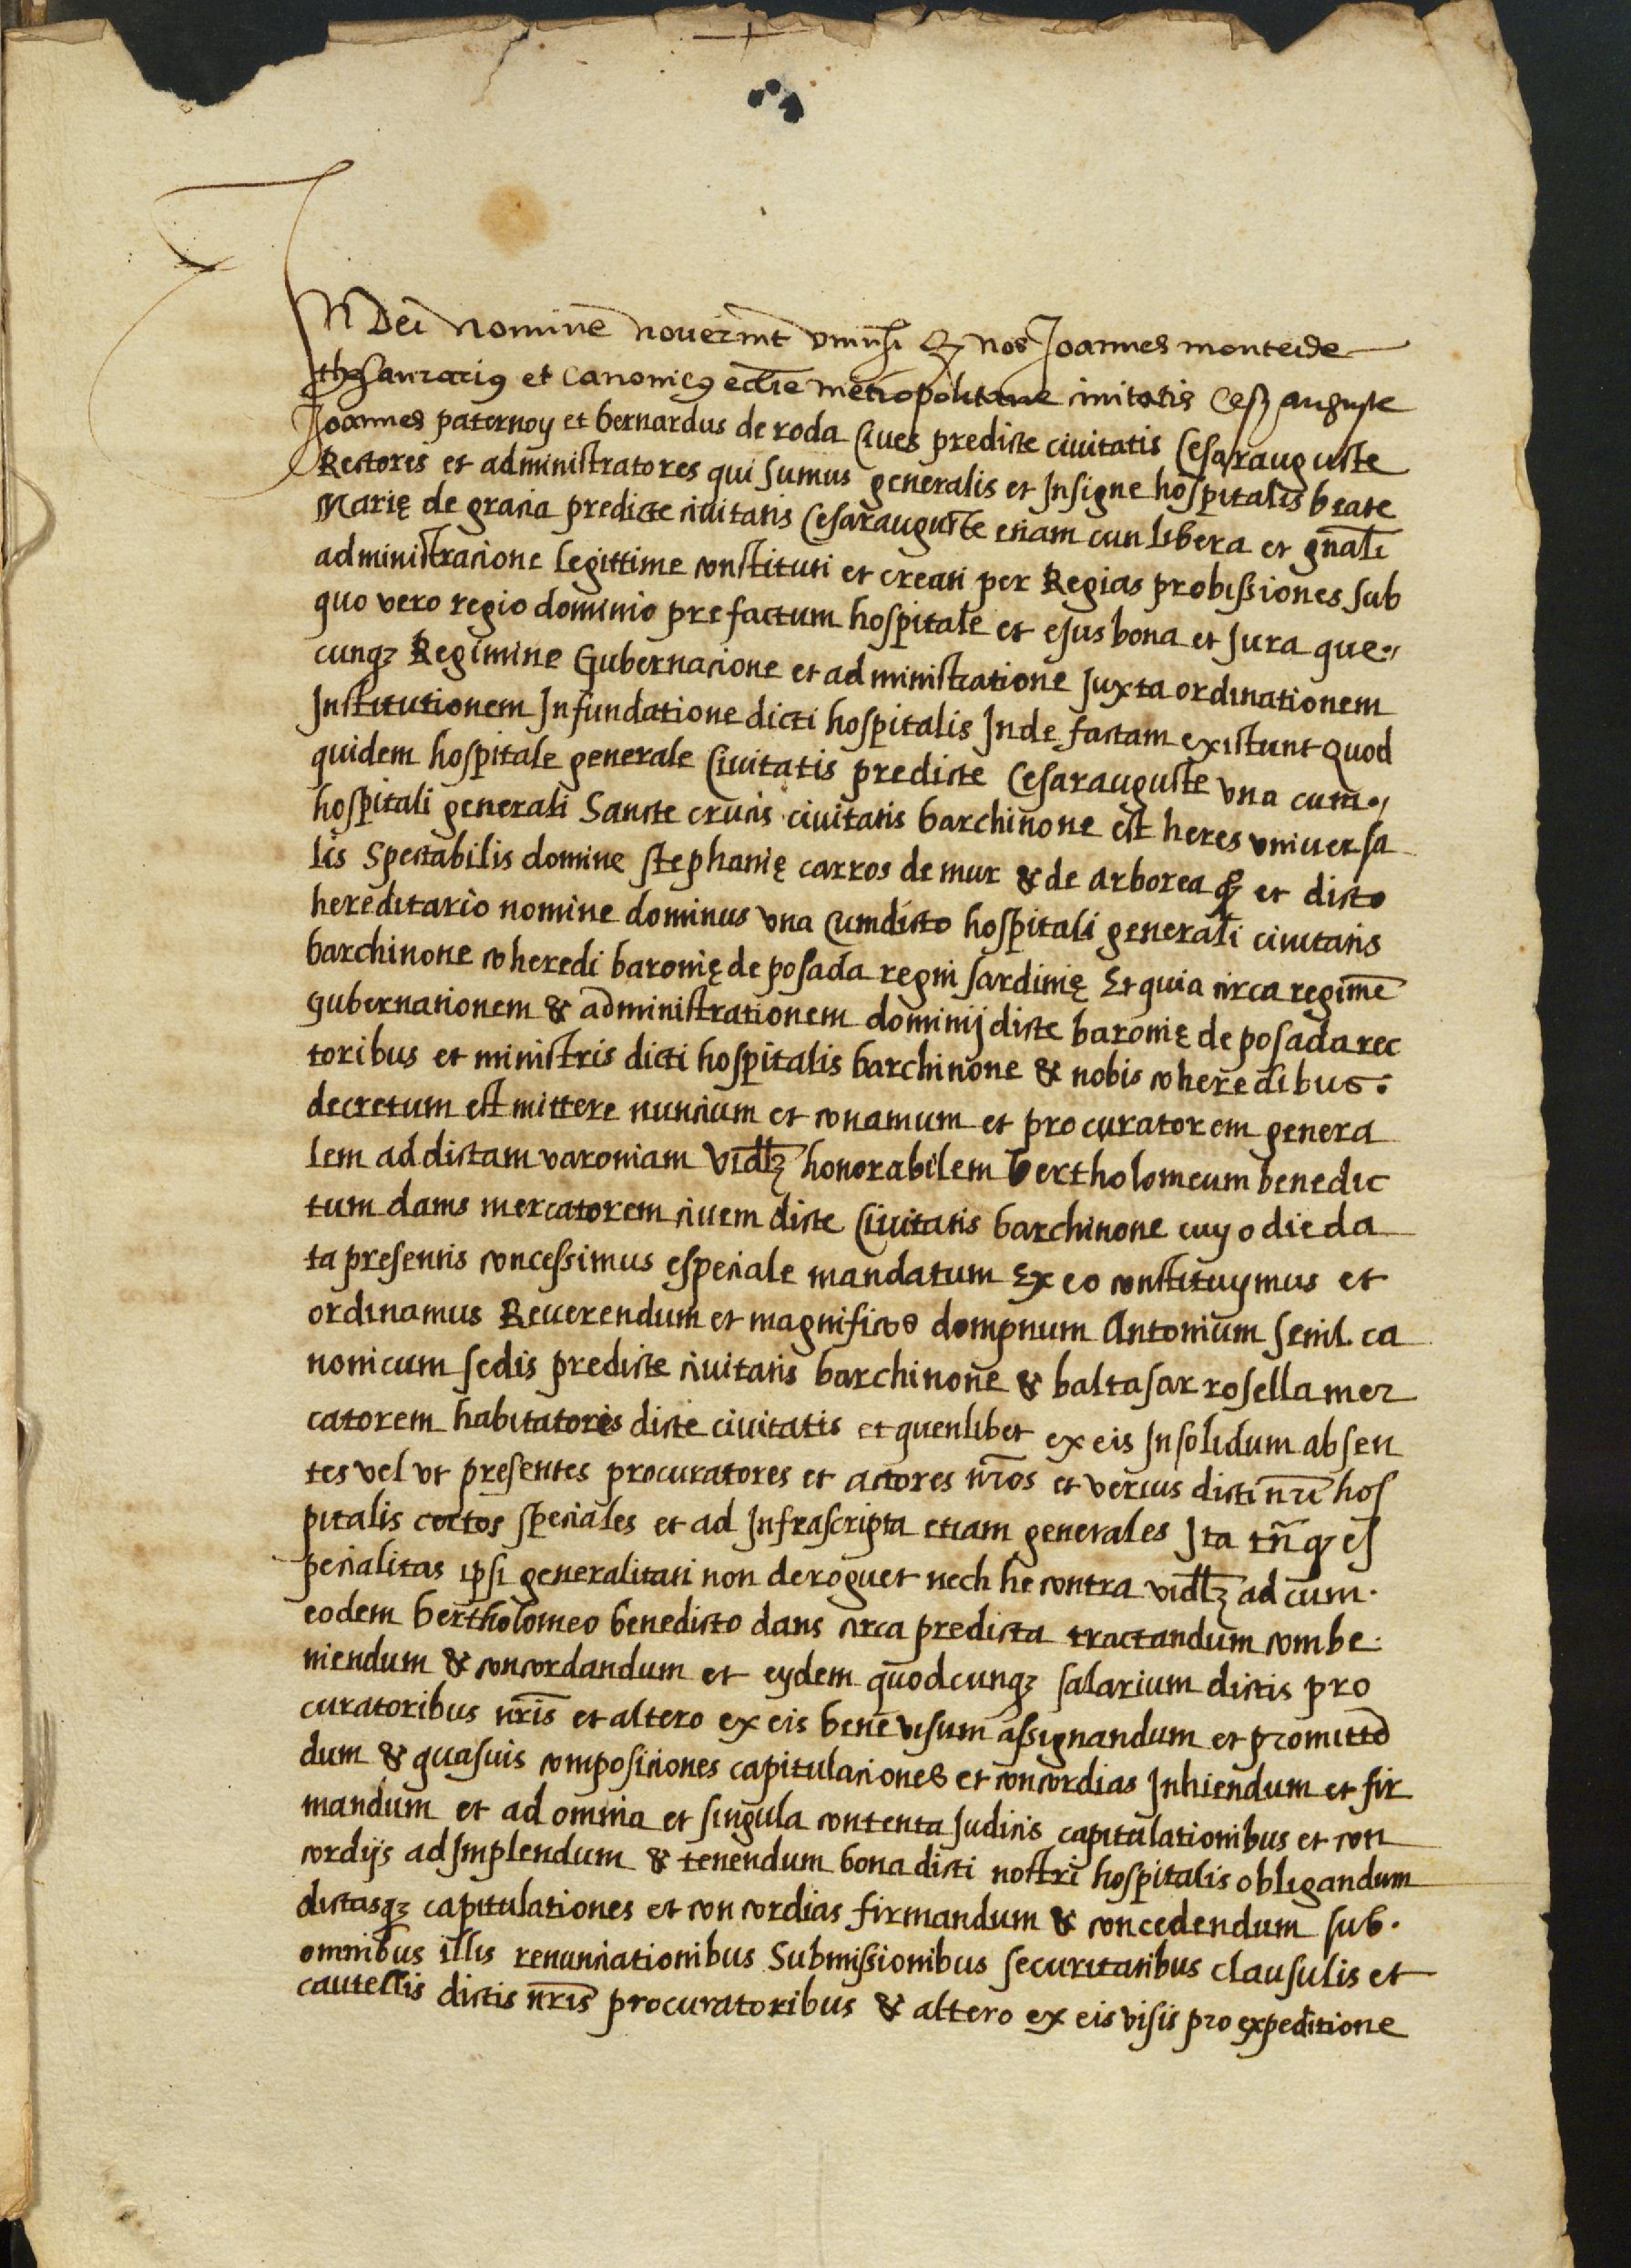 In Dei nomine noverint uniūsi q̃ nos Joannes monteide
thesaurariꝯ et canonicꝯ eccłie metropolitane civitatis Cesȝ auguste
Joannes paternoy et bernardus de roda Cives predicte civitatis Cesarauguste
Rectores et administratores qui sumus generalis et Insigne hospitalis beate
Marię de gracia predicte civitatis Cesarauguste etiam cun libera et gñali
administracione legittime constituti et creati per Regias probissiones sub
quo vero regio dominio prefactum hospitale et ejus bona et Jura que
cunqȝ Regimine Gubernacione et administratione Juxta ordinationem
Institutionem Infundatione dicti hospitalis Inde factam existunt Quod
quidem hospitale generale Civitatis predicte Cesarauguste vna cum
hospitali generali Sancte crucis civitatis barchinone est heres vniversa
lis Spectabilis domine stephanię carros de mur & de Arborea q̃ et dicto
hereditario nomine dominus vna cumdicto hospitali generali civitatis
barchinone coheredi baronię de posada regni sardinię Et quia circa regimē
gubernationem & administrationem dominij dicte baronię de posada rec
toribus et ministris dicti hospitalis barchinone & nobis coheredibus.
decretum est mittere nuncium et conamum et procuratorem genera
lem ad dictam varoniam Vidłȝ honorabilem bertholomeum benedic
tum dams mercatorem civem dicte Civitatis barchinone cuyo die da
ta presentis concessimus especiale mandatum Ex eo constituymus et
ordinamus Reverendum et magnificos dompnum Antonium senil ca
nonicum sedis predicte civitatis barchinone & baltasar rosella mer
catorem habitatoris dicte civitatis et quenlibet ex eis Insolidum absen
tes vel vt presentes procuratores et actores nr̃os et verius dicti nr̃i hos
pitalis certos speciales et ad Infrascripta etiam generales Ita tñ q̃ es
pecialitas ipsi generalitati non deroguet nech he contra vidłȝ ad cum.
eodem bertholomeo benedicto dans circa predicta tractandum combe
niendum & concordandum et eydem quodcunqȝ salarium dictis pro
curatoribus nr̃is et altero ex eis bene visum assignandum et promittē
dum & quasvis composiciones capitulaciones et concordias Inhiendum et fir
mandum et ad omnia et singula contenta Judicis capitulationibus et con
cordijs adImplendum & tenendum bona dicti nostri hospitalis obligandum
dictasqȝ capitulationes et concordias firmandum & concedendum sub.
omnibus illis renunciationibus Submissionibus securitatibus clausulis et
cautellis dictis nr̃is procuratoribus & altero ex eis visis pro expeditione